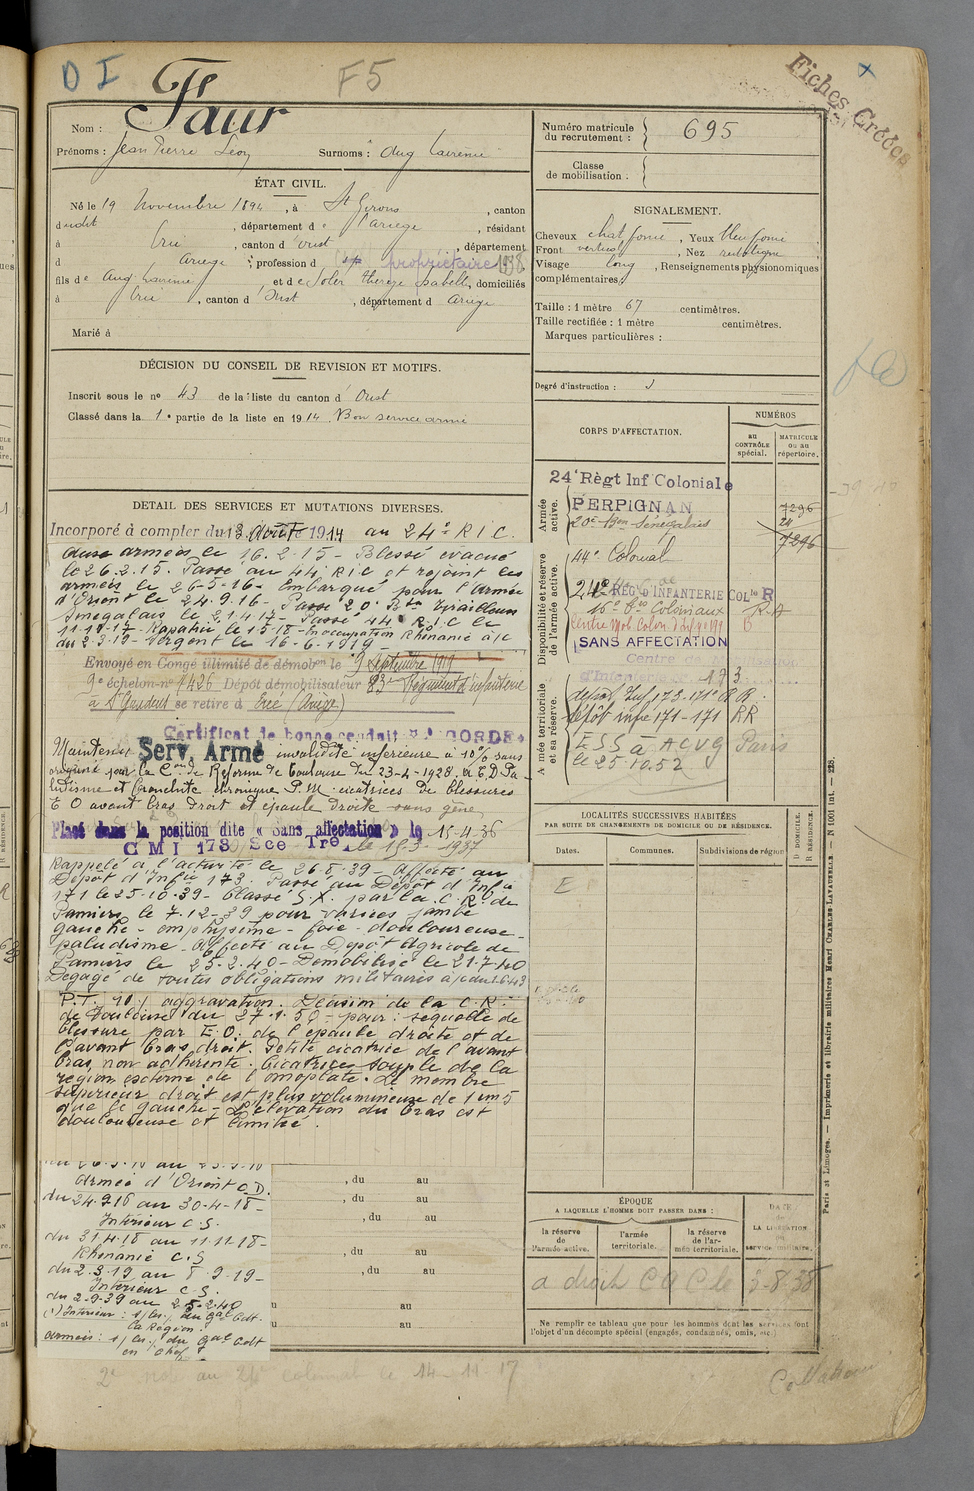 D I
F5
Fiches Créées
Faur
Nom :
Prénoms : Jean Pierre Léon Surnoms : dug Laurence
Numéro matricule du recrutement : 695
Classe de mobilisation .
ÉTAT CIVIL.
Né le 19 Novembre 1894 , à St Girons , canton
dudit , département de l'Ariège , résidant
à Ercé , canton d'Oust , département
d Ariège , profession d propriétaire
fils de , et de Soler Thérèse Isabelle, domiciliés
à Ercé , canton d Oust , département d Ariège
Marié à
SIGNALEMENT.
Cheveux chat foncé , Yeux bleu foncé
Front vertical , Nez rectiligne
Visage long , Renseignements physionomiques
complémentaires:
Taille : 1 mètre 67 centimètres.
Taille rectifiée : 1 mètre centimètres.
Marques particulières :
Degré d'instruction :
DÉCISION DU CONSEIL DE REVISION ET MOTIFS.
Inscrit sous le no 43 de la liste du canton d Oust
Classé dans la 1e partie de la liste en 1914. Bon service armé
CORPS D'AFFECTATION.
NUMÉROS
au CONTRÔLE spécial.
MATRICULE ou au répertoire.
Armée active.
24e Règt Inf Coloniale
PERPIGNAN
20e Bon Sénégalais
7296
24
7296
Disponibilité et réserve de l'armée active.
44e Colonial
24e REG D'INFANTERIE COLle R
SANS AFFECTATION
173
Armée territoriale et sa réserve.
dépôt Inf 173-171e R R.
dépôt infie 171-171 RR
ESS à ACVG Paris
le 25.10.52
DETAIL DES SERVICES ET MUTATIONS DIVERSES.
Incorporé à compter du 13 Août 1914 au 24e R I C.
aux armées le 16.2.15 - Blessé évacué
le 26.2.15. Passé au 44 R I C et rejoint les
armées le 26-5-16 - Embarqué pour l'Armée
d'Orient le 24.9.16 - Passé 20e Btn Tirailleurs
Sénégalais le 2.1.4.17 - Passé 44e R.I C le
11-19-17 - Rapatrié le 1.5-18 - In occupation Rhénanie à/c
du 2-3-19 - Sergent le 16-6-1919 -
Envoyé en Congé illimité de démobon le 9 Septembre 1919
9e échelon-no 1426 Dépôt démobilisateur 83e Régiment d'infanterie
à St Gaudens se retire à Ercé (Ariège)
Certificat de bonne conduite ACCORDÉ
Maintenu Serv. Armé invalidité inférieure à 10% sans
par la Con de Réforme de Toulouse du 23-4-1928. Pa
ludisme et bronchite chronique P.M. cicatrices de blessures
E O avant bras droit et épaule droite sans gêne
Placé dans la position dite « Sans affectation » le 15.4.36
C M I 173 Sce Tre le 15.3.1937
Rappelé à l'activité le 26.8.39 - affecté au
Dépôt d'Infie 173. Passé au Dépôt d'Infie
171 le 25-10-39 - Classé S.X. par la C.R. de
Pamiers le 7-12-39 pour varices jambe
gauche - emphysème - foie - douloureuse -
paludisme - affecté au Dépôt Agricole de
Pamiers le 25-2-40 - Démobilisé le 21-7-40
Dégagé de toutes obligations militaires à/c du 1.6.43
P.T. 10% aggravation. Décision de la C.R.
de Toulouse du 27.1.50 - pour : séquelle de
blessure par E.O. de l'épaule droite et de
l'avant bras droit. Petite cicatrice de l'avant
bras non adhérente. Cicatrice souple de la
région externe de l'omoplate. Le membre
supérieur droit est plus volumineux de 1 cm 5
que le gauche - L'élévation du bras est
douloureuse et limitée.
LOCALITÉS SUCCESSIVES HABITÉES
PAR SUITE DE CHANGEMENTS DE DOMICILE OU DE RÉSIDENCE.
Dates.
Communes.
Subdivisions de région
D DOMICILE.
R RÉSIDENCE.
E
Armée d'Orient C.D.
du 24.9.16 au 30-4-18 -
Intérieur C.S.
du 31.4.18 au 11-11-18 -
Rhénanie C.S
du 2-3-19 au 8-9-19 -
Intérieur C S.
du 2-9-39 au 25-2-40
, du au
, du au
, du au
, du au
, du au
au
au
ÉPOQUE
A LAQUELLE L'HOMME DOIT PASSER DANS :
la réserve de l'armée active.
l'armée territoriale.
la réserve de l'armée territoriale.
DATE de LA LIBÉRATION du service militaire.
Ne remplir ce tableau que pour les hommes dont les services font
l'objet d'un décompte spécial (engagés, condamnés, omis, etc.)
Paris et Limoges. — Imprimerie et librairie militaires Henri CHARLES-LAVAUZELLE. — N 1001 int. — 228.
au 24e colonial le 14-11-17